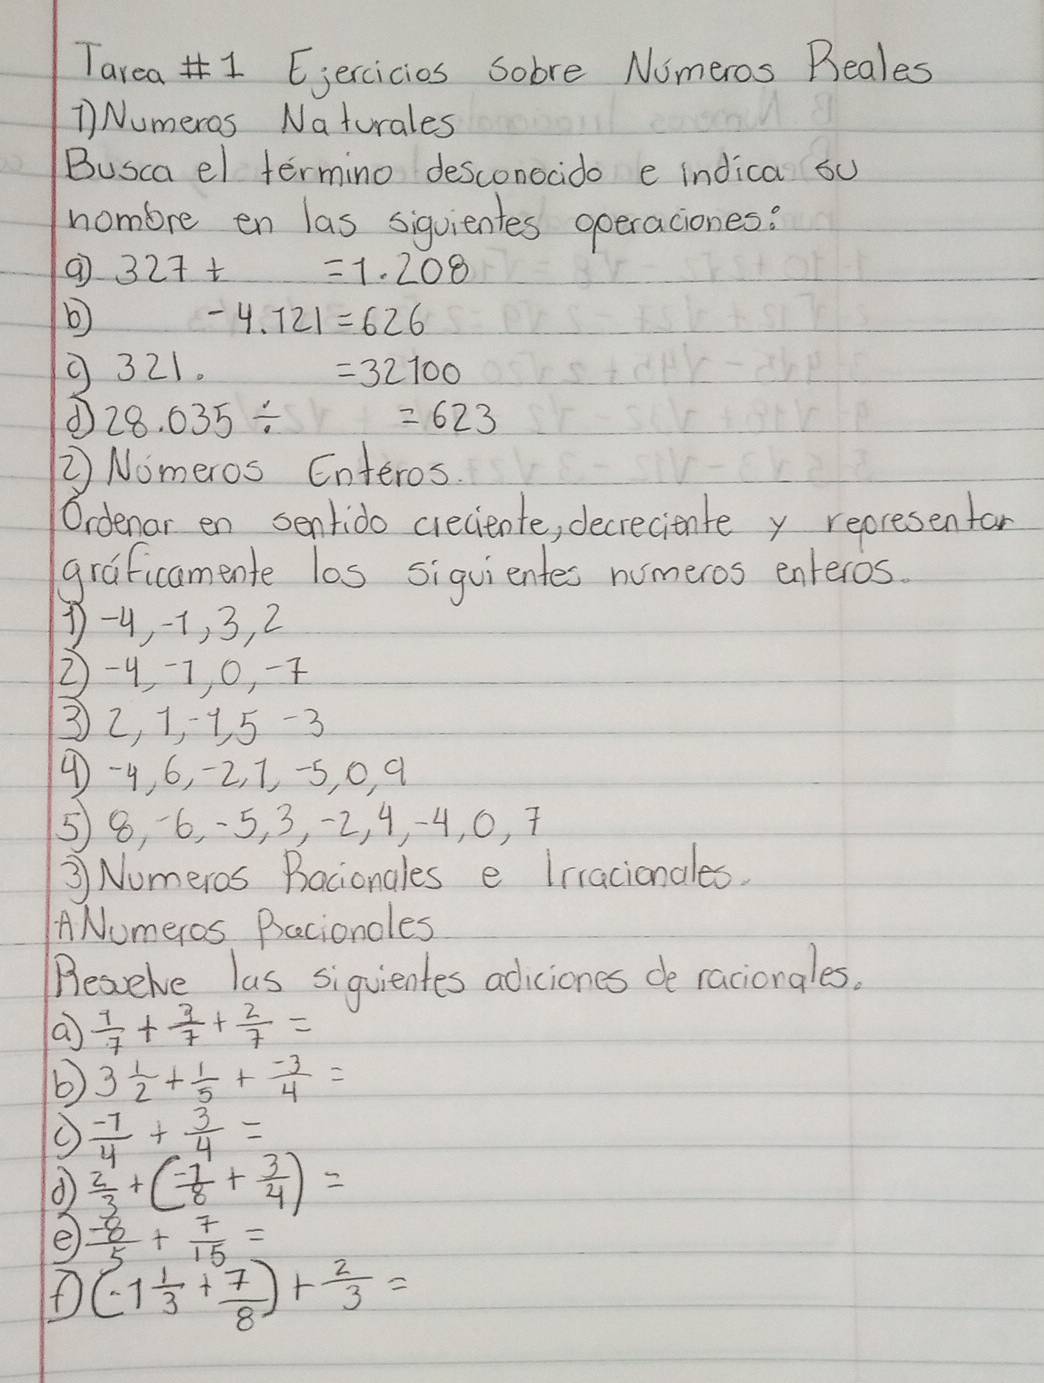 Tarea #1 Ejercicios sobre Números Reales
1) Numeros Naturales
Busca el término desconocido e indica su
nombre en las siguientes operaciones:
a) 327 + =1.208
b) -4.121=626
c) 321. =32100
d) 28.035 ÷ =623
2) Números Enteros.
Ordenar en sentido creciente, decreciente y representar
gráficamente los siguientes números enteros.
1) -4,-1,3,2
2) -4,-1,0,-7
3) 2,1,-1,5 -3
4) -4,6,-2,1,-5,0,9
5) 8,-6,-5,3,-2,4,-4,0,7
3) Numeros Racionales e Irracionales.
A Numeros Racionales
Resuelve las siguientes adiciones de racionales.
a) 1/7 + 3/7 + 2/7 =
b) 3 1/2 + 1/5 + -3/4 =
c) -1/4 + 3/4 =
d) 2/3 + (-1/8 + 3/4) =
e) -8/5 + 7/15 =
f) (-1 1/3 + 7/8) + 2/3 =